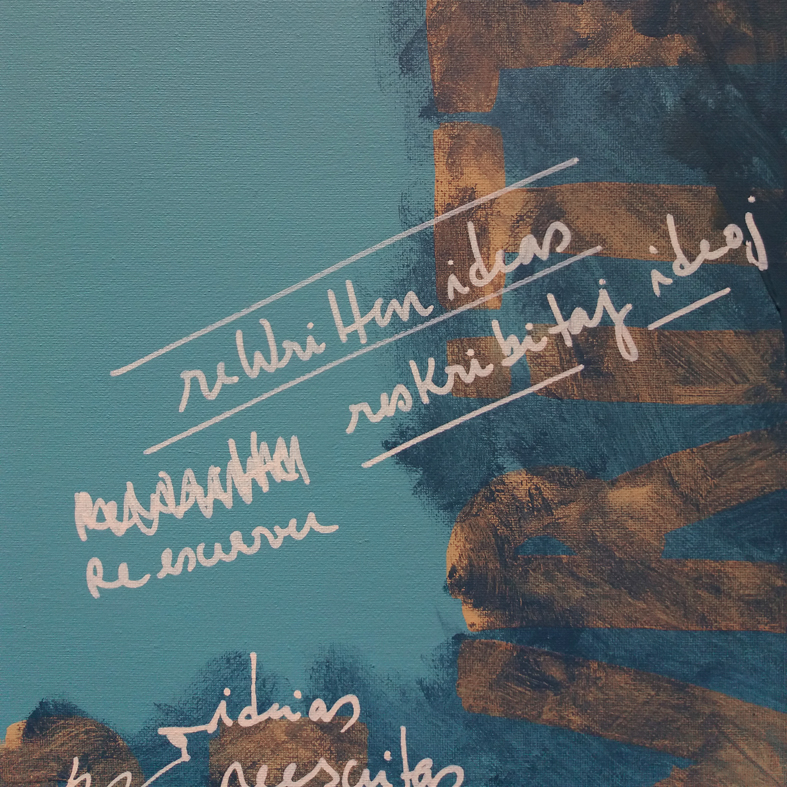 reWritten ideas
reskribitaj ideoj
Re escrever
ideias
reescritas